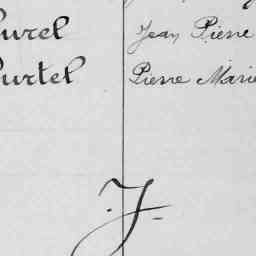 urel Jean Pierre
urtel Pierre Marie
J